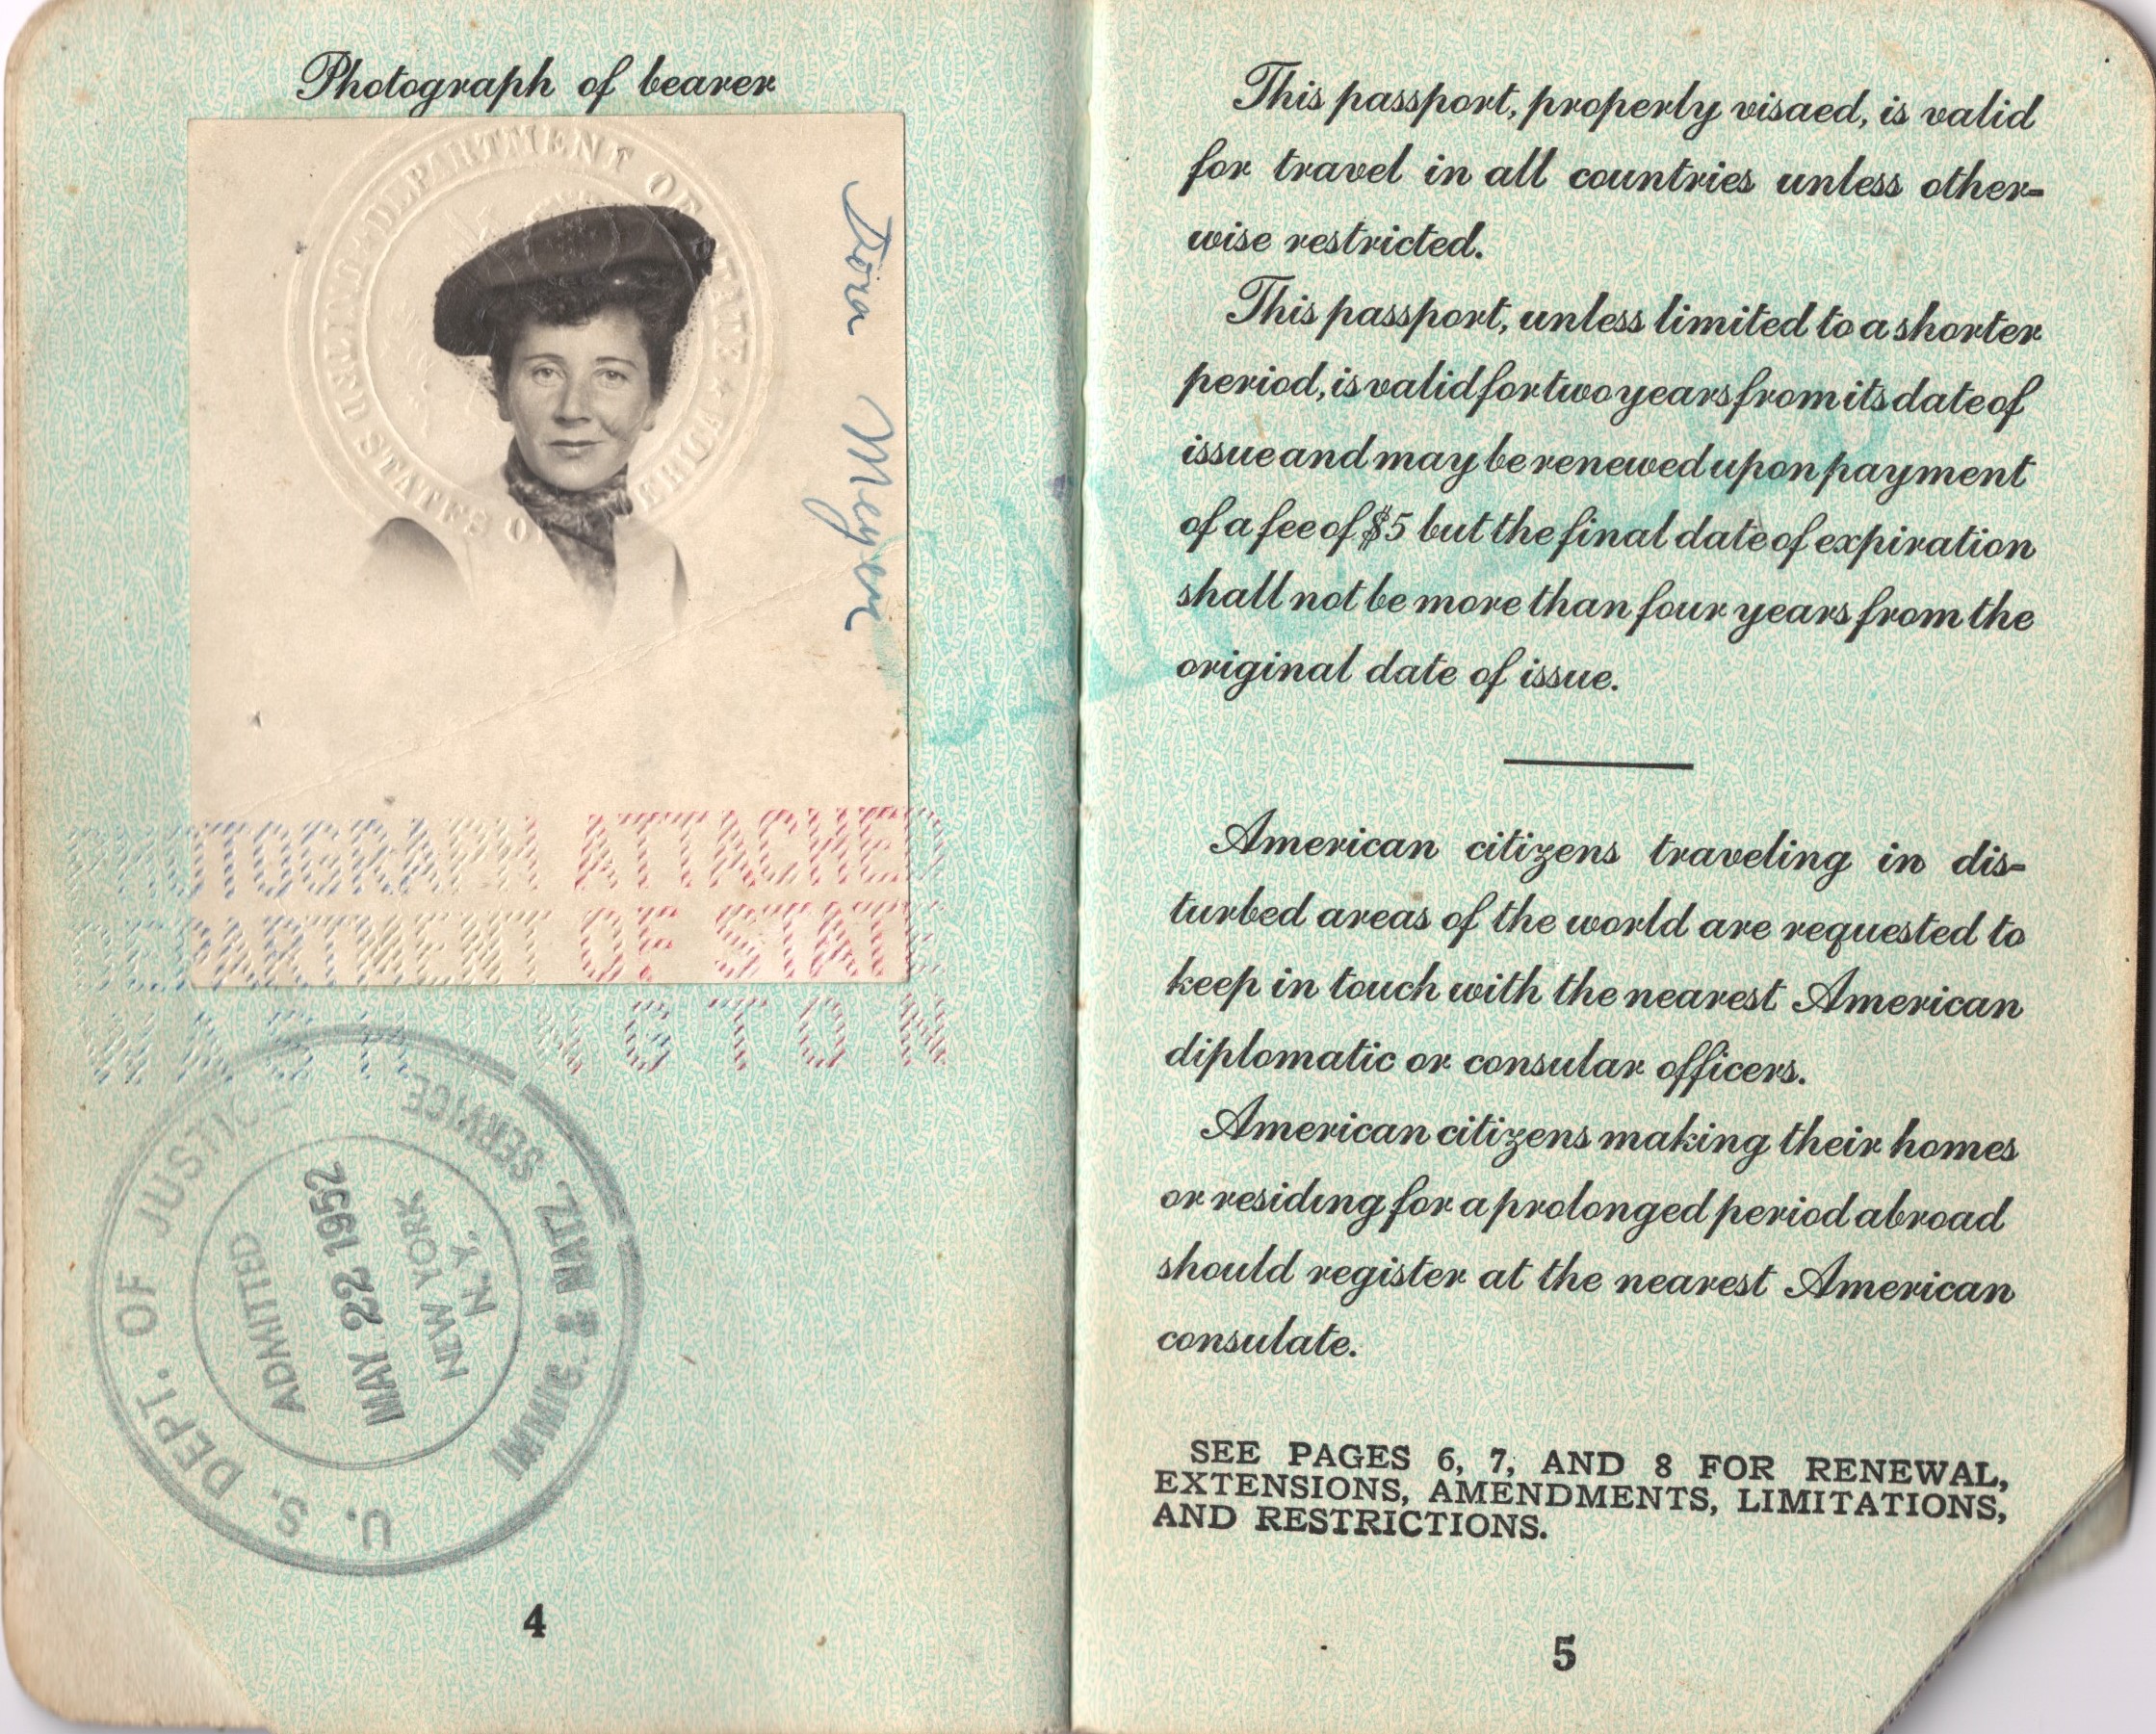 Photograph of bearer
DEPARTMENT OF STATE
UNITED STATES OF AMERICA
Dora Meyer
PHOTOGRAPH ATTACHED
DEPARTMENT OF STATE
WASHINGTON
U. S. DEPT. OF JUSTICE
IMMIG. & NATZ. SERVICE
ADMITTED
MAY 22 1952
NEW YORK
N. Y.
4
This passport, properly visaed, is valid
for travel in all countries unless other-
wise restricted.
This passport, unless limited to a shorter
period, is valid for two years from its date of
issue and may be renewed upon payment
of a fee of $5 but the final date of expiration
shall not be more than four years from the
original date of issue.
American citizens traveling in dis-
turbed areas of the world are requested to
keep in touch with the nearest American
diplomatic or consular officers.
American citizens making their homes
or residing for a prolonged period abroad
should register at the nearest American
consulate.
SEE PAGES 6, 7, AND 8 FOR RENEWAL,
EXTENSIONS, AMENDMENTS, LIMITATIONS,
AND RESTRICTIONS.
5